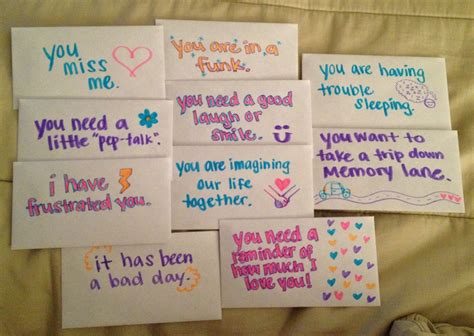 you
miss
me.
you are in a
funk.
you are having
trouble
sleeping.
you need a
little "pep-talk".
you need a good
laugh or
smile.
you want to
take a trip down
memory lane.
i have
frustrated you.
you are imagining
our life
together.
it has been
a bad day.
you need a
reminder of
how much I
love you!